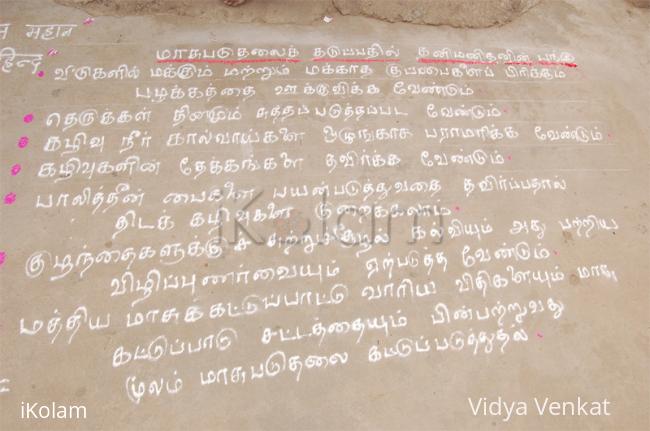 महान
हिन्द
மாசுபடுதலைத் தடுப்பதில் தனிமனிதவின் பங்கு
வீடுகளில் மக்கும் மற்றும் மக்காத குப்பைகளைப் பிரிக்கும்
பழக்கத்தை ஊக்குவிக்க வேண்டும்
தெருக்கள் தினமும் சுத்தப்படுத்தப்பட வேண்டும்.
கழிவு நீர் கால்வாய்களை ஒழுங்காக பராமரிக்க வேண்டும்.
கழிவுகளின் தேக்கங்களை தவிர்க்க வேண்டும்.
பாலித்தீன் பைகளை பயன்படுத்துவதை தவிர்ப்பதால்
திடக் கழிவுகளை குறைக்கலாம்.
குழந்தைகளுக்குச் சுற்றுச்சூழல் கல்வியும் அது பற்றிய
விழிப்புணர்வையும் ஏற்படுத்த வேண்டும்.
மத்திய மாசுக்கட்டுப்பாட்டு வாரிய விதிகளையும் மாசு
கட்டுப்பாடு சட்டத்தையும் பின்பற்றுவது
மூலம் மாசுபடுதலை கட்டுப்படுத்துதல்.
iKolam
iKolam
Vidya Venkat